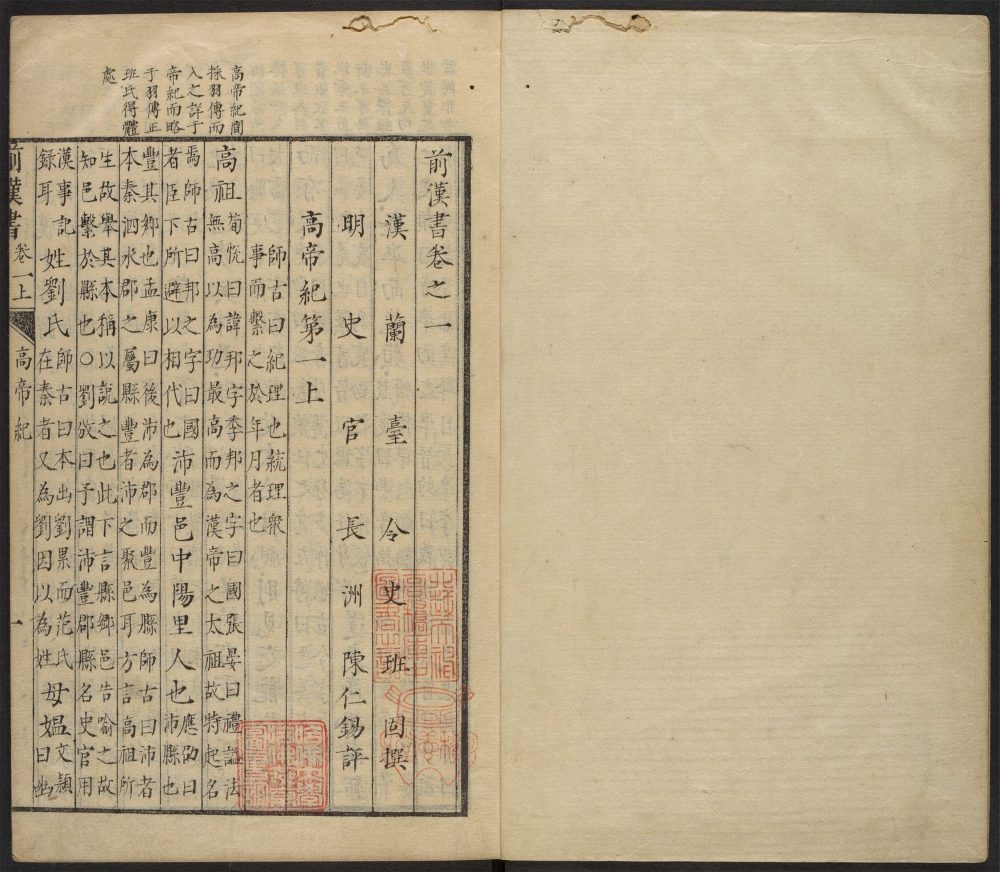 高帝紀間
採羽傳而
入之詳于
帝紀而略
于羽傳正
班氏得體
處
前漢書卷之一
漢蘭臺令史班固撰
明史官長洲陳仁錫評
高帝紀第一上
師古曰紀理也統理衆
事而繫之於年月者也
高祖荀恱曰諱邦字季邦之字曰國張晏曰禮謚法
無高以為功最高而為漢帝之太祖故特起名
焉師古曰邦之字曰國沛豐邑中陽里人也應劭曰
者臣下所避以相代也沛縣也
豐其鄉也孟康曰後沛為郡而豐為縣師古曰沛者
本秦泗水郡之屬縣豐者沛之聚邑耳方言高祖所
生故舉其本稱以說之也此下言縣鄉邑告喻之故
知邑繫於縣也○劉攽曰予謂沛豐郡縣名史官用
漢事記姓劉氏師古曰本出劉累而范氏母媼文穎
錄耳在秦者又為劉因以為姓曰幽
前漢書卷一上
高帝紀
一